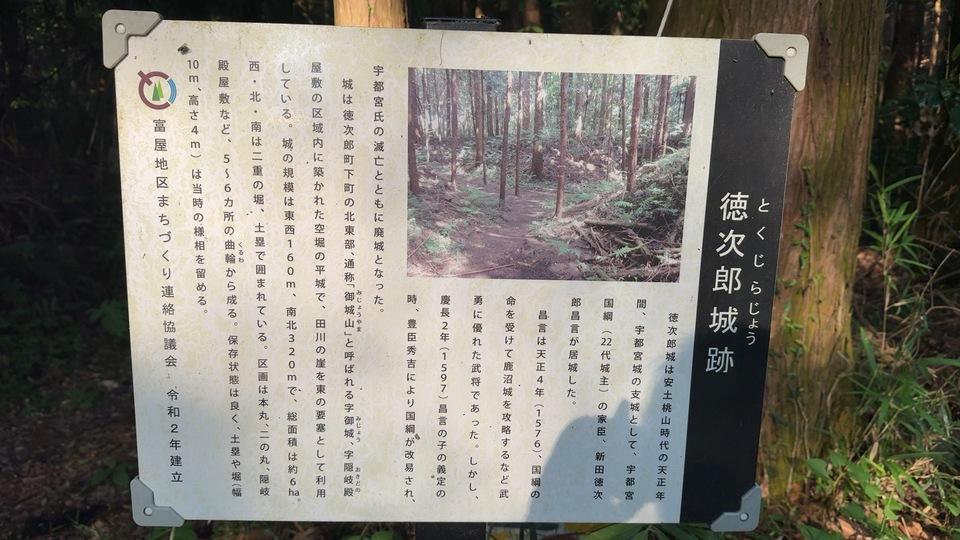 とくじ らじょう
徳次郎城跡
徳次郎城は安土桃山時代の天正年
間、宇都宮城の支城として、宇都宮
国綱（22代城主）の家臣、新田徳次
郎昌言が居城した。
昌言は天正４年（1576）、国綱の
命を受けて鹿沼城を攻略するなど武
勇に優れた武将であった。しかし、
慶長２年（1597）昌言の子の義定の
時、豊臣秀吉により国綱が改易され、
宇都宮氏の滅亡とともに廃城となった。
城は徳次郎町下町の北東部、通称「御城山」と呼ばれる字御城、字隠岐殿
みじょうやま みじょう おきどの
屋敷の区域内に築かれた空堀の平城で、田川の崖を東の要塞として利用
している。城の規模は東西160m、南北320mで、総面積は約6ha。
西・北・南は二重の堀、土塁で囲まれている。区画は本丸、二の丸、隠岐
殿屋敷など、5～6カ所の曲輪から成る。保存状態は良く、土塁や堀（幅
くるわ
10m、高さ4m）は当時の様相を留める。
富屋地区まちづくり連絡協議会 令和２年建立